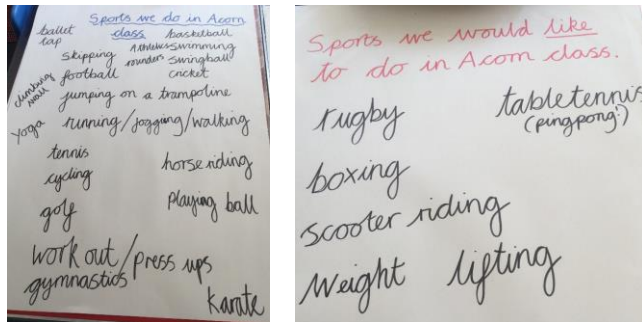 Sports we do in Acorn
class
ballet
tap
basketball
skipping
swimming
rounders
swingball
football
cricket
climbing
wall
jumping on a trampoline
yoga
running/jogging/walking
tennis
horse riding
cycling
golf
playing ball
work out/press ups
gymnastics
karate
Sports we would like
to do in Acorn class.
rugby
tabletennis
(pingpong!)
boxing
scooter riding
weight lifting